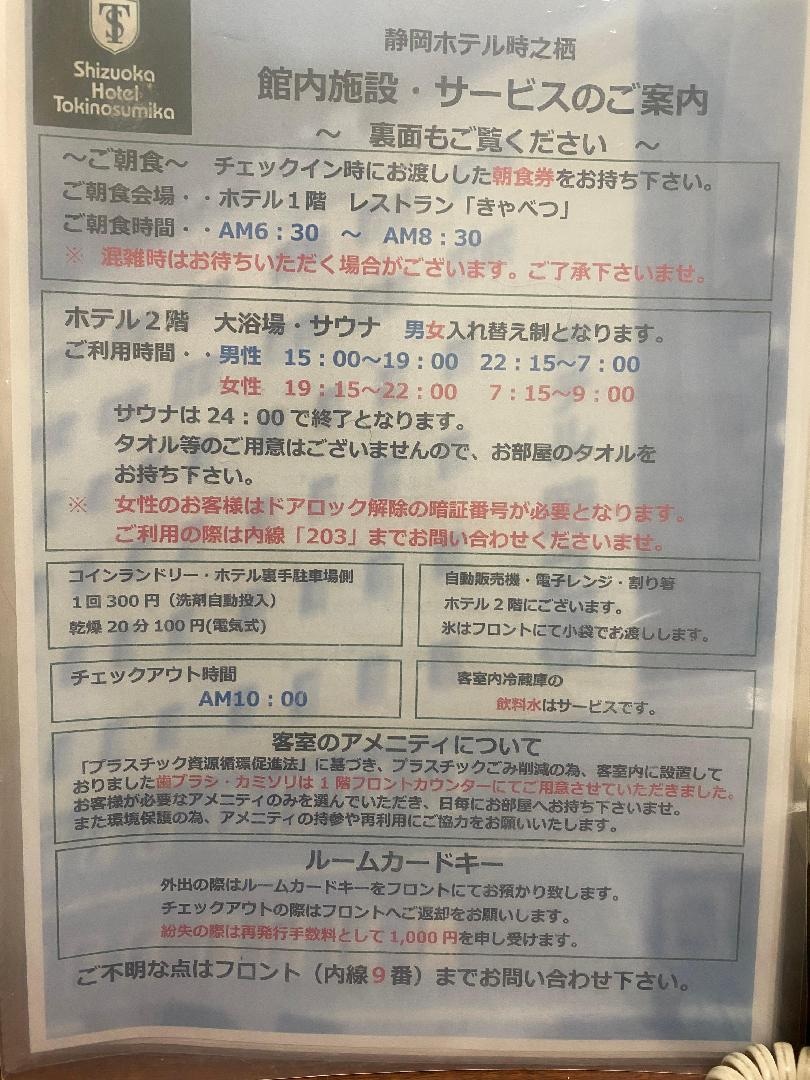 TS
Shizuoka
Hotel
Tokinosumika
静岡ホテル時之栖
館内施設・サービスのご案内
～ 裏面もご覧ください ～
～ご朝食～ チェックイン時にお渡しした朝食券をお持ち下さい。
ご朝食会場・・ホテル１階 レストラン「きゃべつ」
ご朝食時間・・AM6：30 ～ AM8：30
※ 混雑時はお待ちいただく場合がございます。ご了承下さいませ。
ホテル２階 大浴場・サウナ 男女入れ替え制となります。
ご利用時間・・男性 15：00～19：00 22：15～7：00
女性 19：15～22：00 7：15～9：00
サウナは 24：00 で終了となります。
タオル等のご用意はございませんので、お部屋のタオルを
お持ち下さい。
※ 女性のお客様はドアロック解除の暗証番号が必要となります。
ご利用の際は内線「203」までお問い合わせくださいませ。
コインランドリー・ホテル裏手駐車場側
１回 300 円（洗剤自動投入）
乾燥 20 分 100 円(電気式)
自動販売機・電子レンジ・割り箸
ホテル２階にございます。
氷はフロントにて小袋でお渡しします。
チェックアウト時間
AM10：00
客室内冷蔵庫の
飲料水はサービスです。
客室のアメニティについて
「プラスチック資源循環促進法」に基づき、プラスチックごみ削減の為、客室内に設置して
おりました歯ブラシ・カミソリは 1 階フロントカウンターにてご用意させていただきました。
お客様が必要なアメニティのみを選んでいただき、日毎にお部屋へお持ち下さいませ。
また環境保護の為、アメニティの持参や再利用にご協力をお願いいたします。
ルームカードキー
外出の際はルームカードキーをフロントにてお預かり致します。
チェックアウトの際はフロントへご返却をお願いします。
紛失の際は再発行手数料として 1,000 円を申し受けます。
ご不明な点はフロント（内線９番）までお問い合わせ下さい。